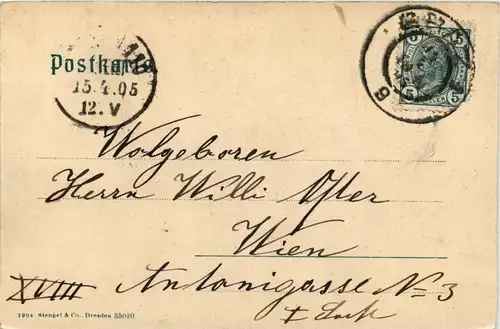 Postkarte
15.4.05
12.V
5 5
5 5
Wolgeboren
Herrn Willi Ofter
Wien
XVIII Antonigasse No 3
I. Stock
1904 Stengel & Co., Dresden 35020